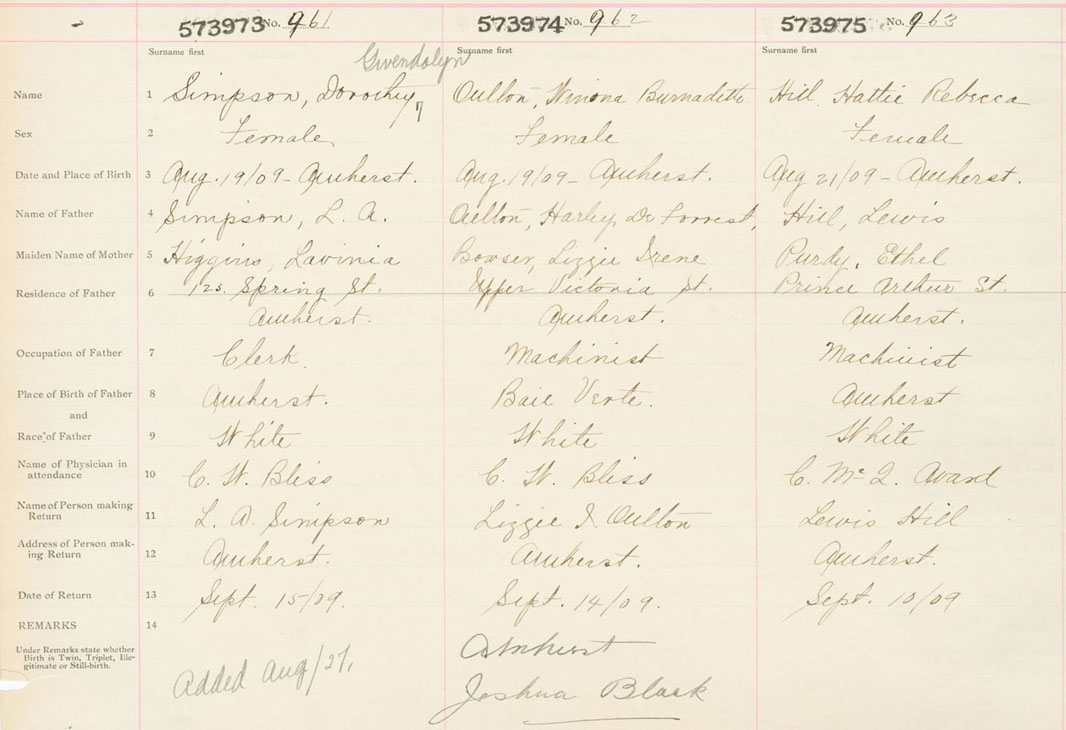 573973 No. 961 573974 No. 962 573975 No. 963
Surname first Surname first Surname first
Gwendolyn
Name 1 Simpson, Dorothy, Oulton, Winona Burnadette Hill, Hattie Rebecca
Sex 2 Female Female Female
Date and Place of Birth 3 Aug. 19/09 - Amherst. Aug. 19/09 - Amherst. Aug 21/09 - Amherst.
Name of Father 4 Simpson, L. A. Oulton, Harley, De Forrest, Hill, Lewis
Maiden Name of Mother 5 Higgins, Lavinia Bowser, Lizzie Irene Purdy, Ethel
Residence of Father 6 Spring St. Upper Victoria St. Prince Arthur St.
Amherst. Amherst. Amherst.
Occupation of Father 7 Clerk. Machinist Machinist
Place of Birth of Father 8 Amherst. Baie Verte. Amherst
and
Race of Father 9 White White White
Name of Physician in
attendance 10 C. W. Bliss C. W. Bliss C. Mc Q. Avard
Name of Person making
Return 11 L. A. Simpson Lizzie I. Oulton Lewis Hill
Address of Person mak-
ing Return 12 Amherst. Amherst. Amherst.
Date of Return 13 Sept. 15/09. Sept. 14/09. Sept. 10/09
REMARKS 14
Under Remarks state whether
Birth is Twin, Triplet, Ille-
gitimate or Still-birth.
Amherst
Added Aug/27.
Joshua Black